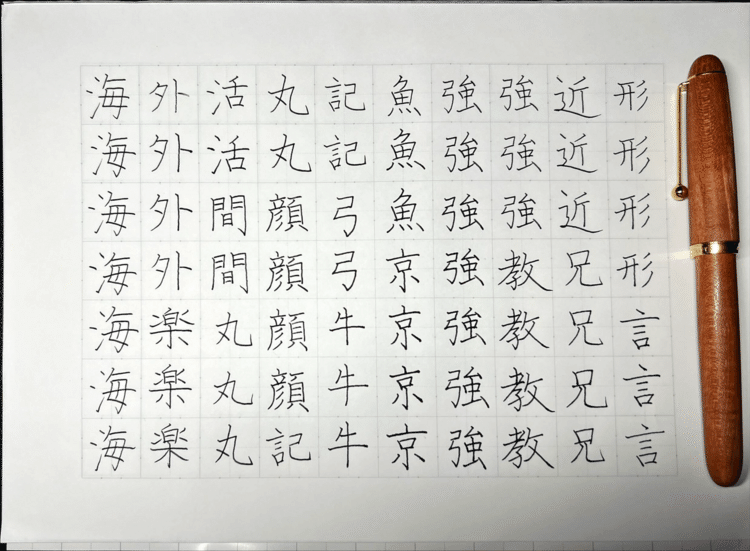 海外活丸記魚強強近形
海外活丸記魚強強近形
海外間顔弓魚強強近形
海外間顔弓京強教兄形
海楽丸顔牛京強教兄言
海楽丸顔牛京強教兄言
海楽丸記牛京強教兄言